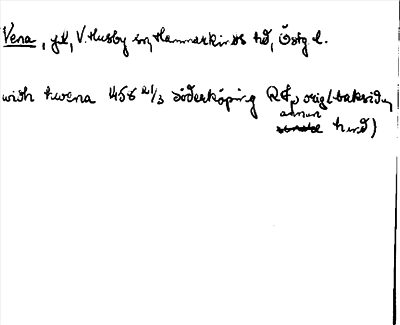 Vena, gd, V. Husby sn, Hammarkinds hd, Östg. l.
widh hwena 1456 21/3 Söderköping RAp orig (baksidan,
annan
hand)